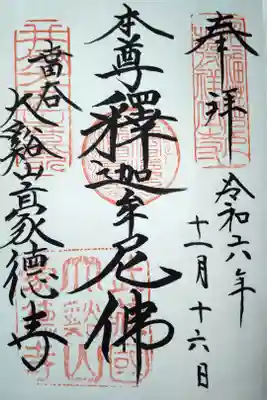 奉拜
令和六年
十一月十六日
本尊釋迦牟尼佛
世田谷
大谿山豪德寺